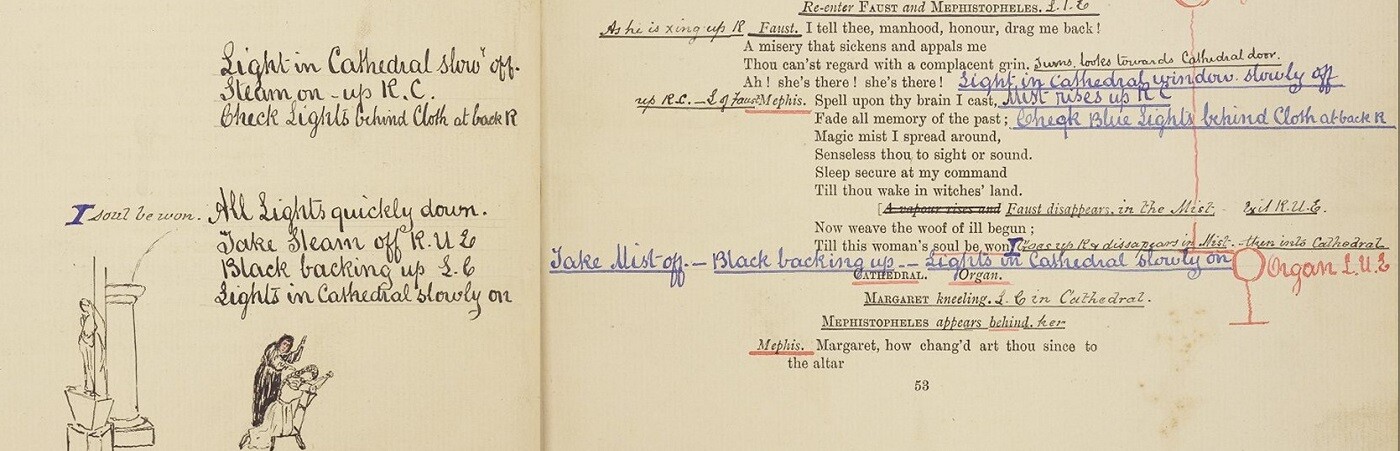 Light in Cathedral slowʸ off.
Steam on - up R.C.
Check Lights behind Cloth at back R
I soul be won. All Lights quickly down.
Take Steam off R.U.E
Black backing up L.C
Lights in Cathedral slowly on
Re-enter FAUST and MEPHISTOPHELES. L.1.E
As he is xing up R Faust. I tell thee, manhood, honour, drag me back!
A misery that sickens and appals me
Thou can'st regard with a complacent grin. Turns. looks towards Cathedral door.
Ah! she's there! she's there! Light in Cathedral window. slowly off
up R.C. - L of Faust Mephis. Spell upon thy brain I cast, Mist rises up R C
Fade all memory of the past; Check Blue Lights behind Cloth at back R
Magic mist I spread around,
Senseless thou to sight or sound.
Sleep secure at my command
Till thou wake in witches' land.
[A vapour rises and Faust disappears. in the Mist. - Exit R.U.E.
Now weave the woof of ill begun;
Till this woman's soul be won I Goes up R & dissapears in Mist. - then into Cathedral
Take Mist off. - Black backing up - Lights in Cathedral slowly on Organ L.U.E
CATHEDRAL. Organ.
MARGARET kneeling. L.C in Cathedral.
MEPHISTOPHELES appears behind. her
Mephis. Margaret, how chang'd art thou since to
the altar
53